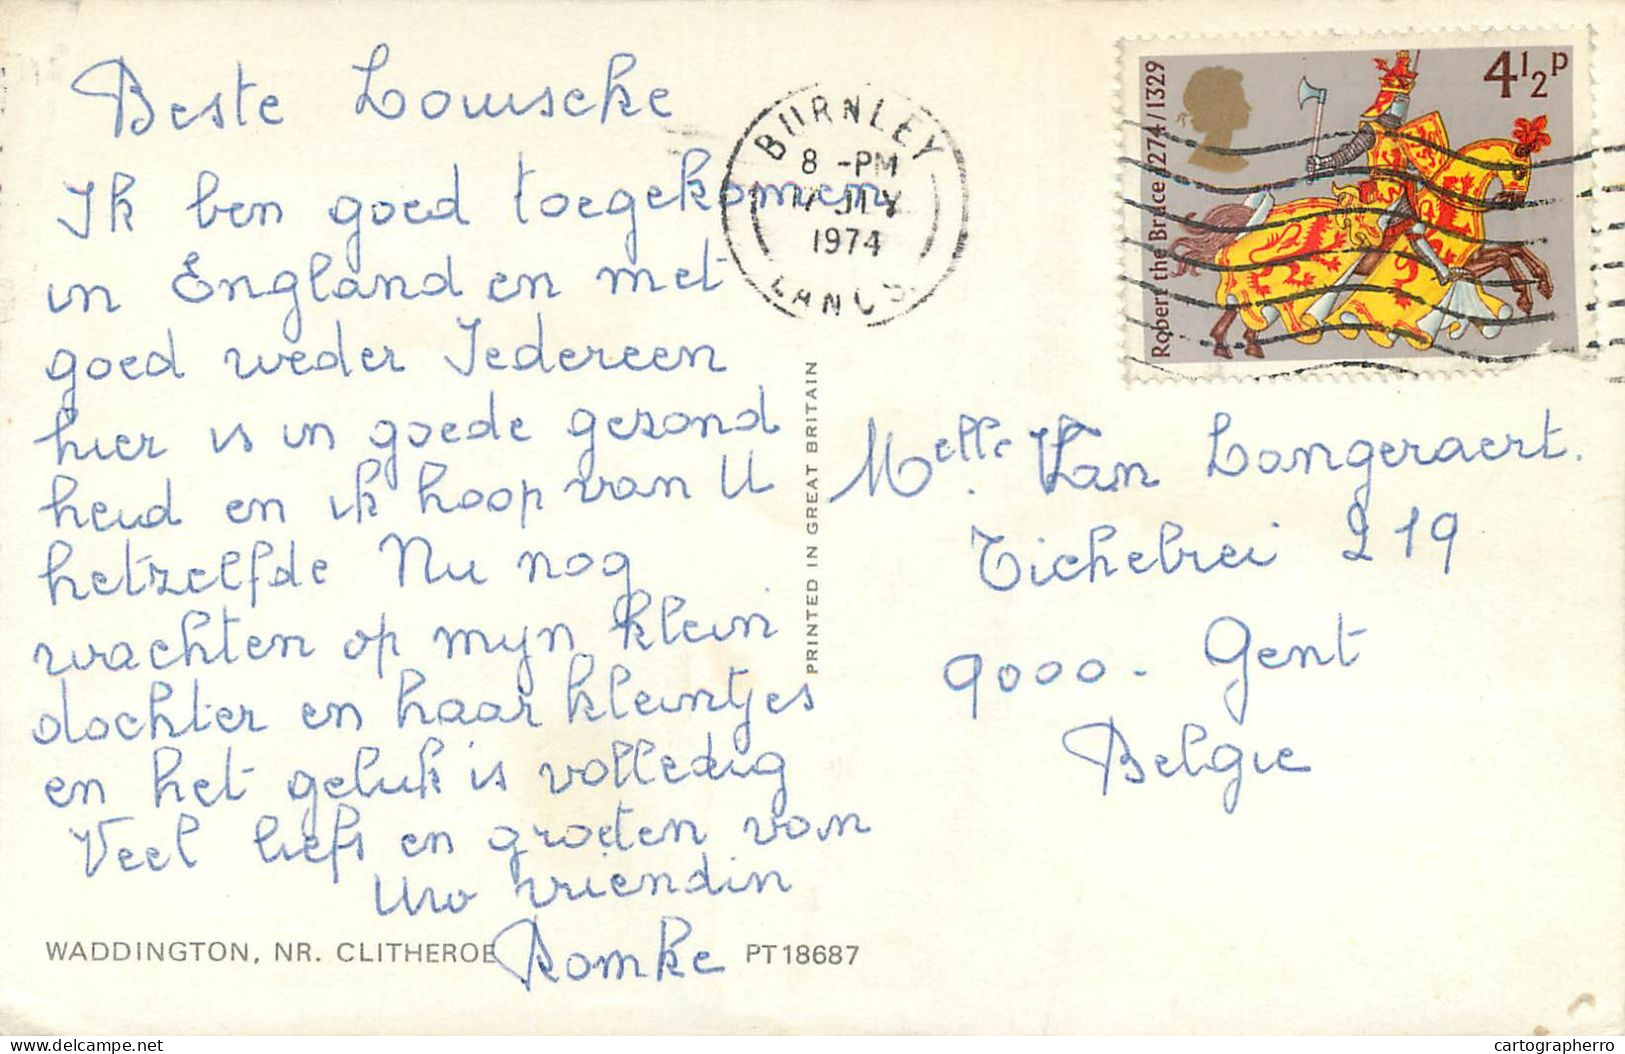 Beste Louiseke
Ik ben goed toegekomen
in England en met
goed weder Iedereen
hier is in goede gezond
heid en ik hoop van U
hetzelfde Nu nog
wachten op mijn klein
dochter en haar kleintjes
en het geluk is volledig
Veel liefs en groeten van
Uw vriendin
Romke
WADDINGTON, NR. CLITHEROE
PT18687
PRINTED IN GREAT BRITAIN
BURNLEY
8 -PM
JLY
1974
LANCS.
Robert the Bruce 1274/1329
4½P
Melle. Van Longeraert.
Tichelrei 219
9000. Gent
Belgie
delcampe.net
cartographerro